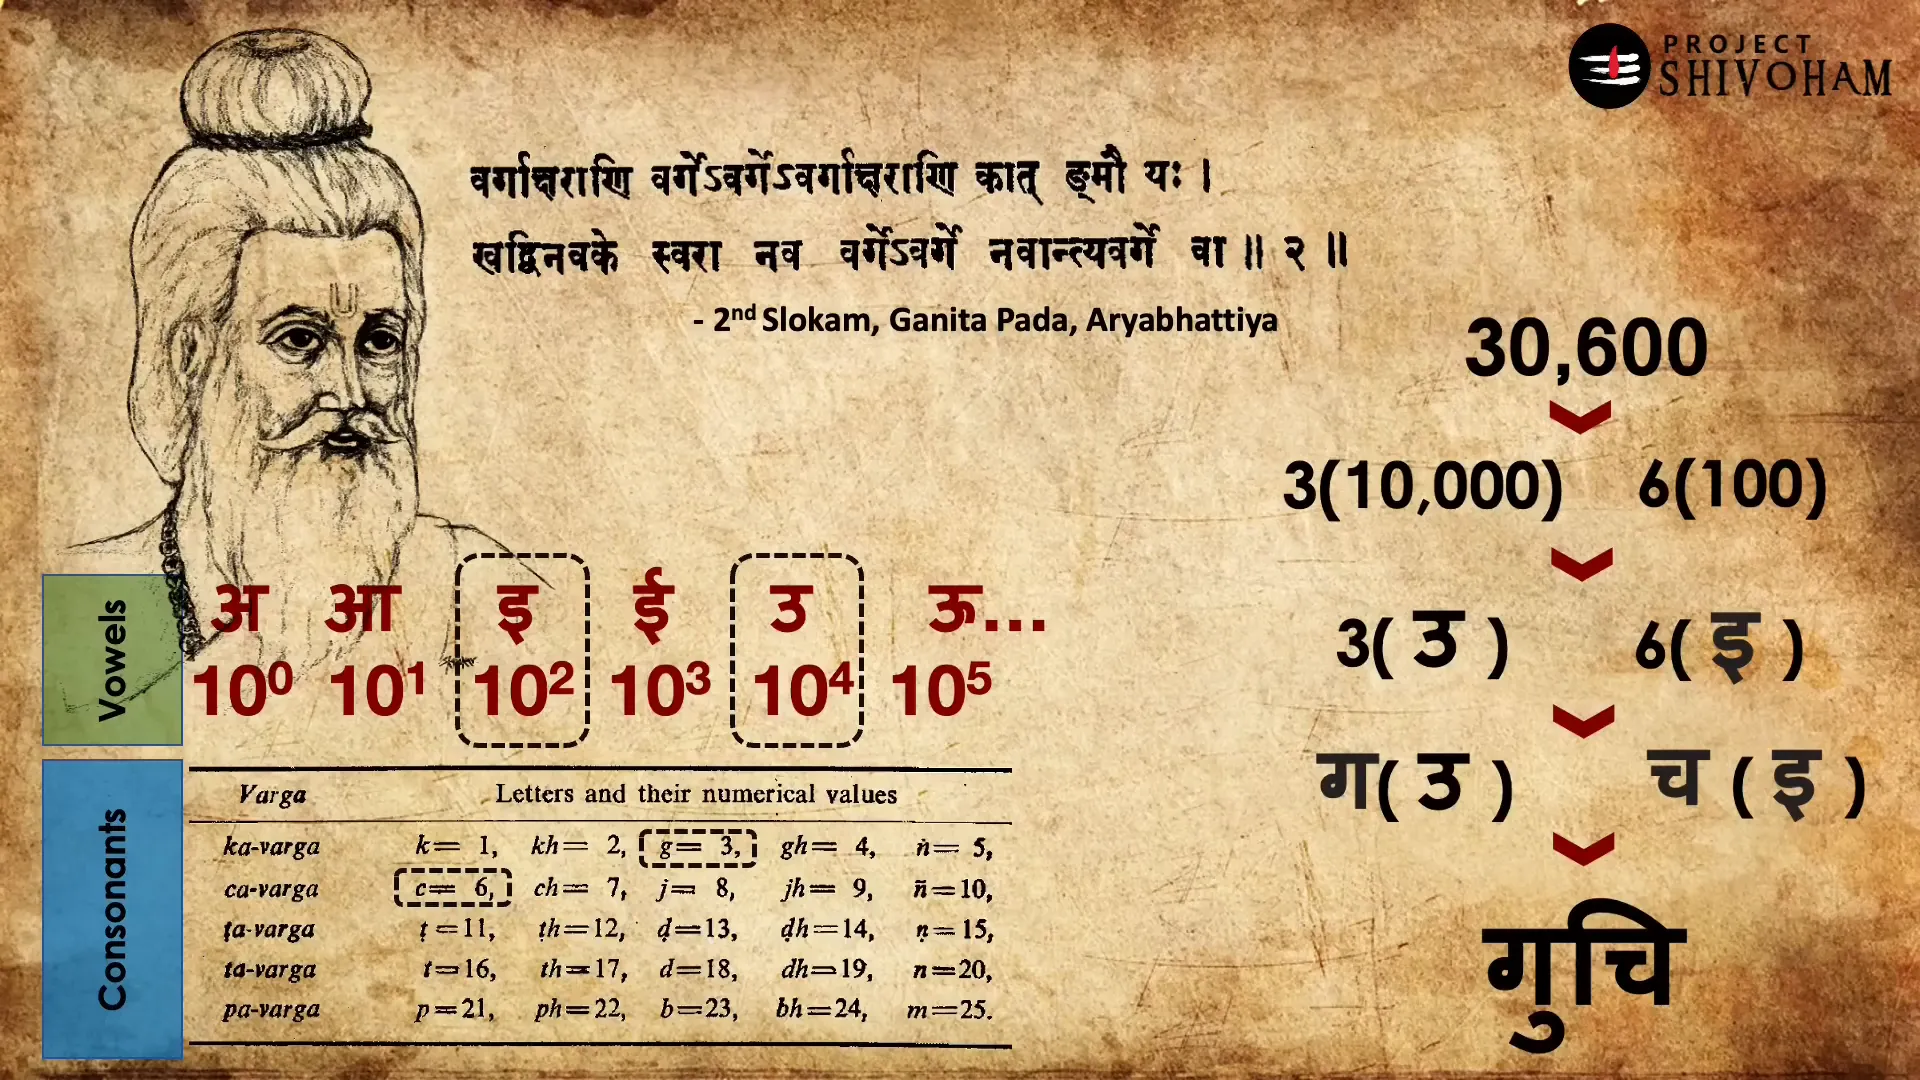 PROJECT
SHIVOHAM
वर्गाक्षराणि वर्गेऽवर्गेऽवर्गाक्षराणि कात् ङ्मौ यः ।
खद्विनवके स्वरा नव वर्गेऽवर्गे नवान्त्यवर्गे वा ॥ २ ॥
- 2nd Slokam, Ganita Pada, Aryabhattiya
30,600
3(10,000) 6(100)
3( उ ) 6( इ )
ग( उ ) च ( इ )
गुचि
Vowels
अ आ इ ई उ ऊ...
10⁰ 10¹ 10² 10³ 10⁴ 10⁵
Consonants
Varga Letters and their numerical values
ka-varga k= 1, kh= 2, g= 3, gh= 4, ṅ= 5,
ca-varga c= 6, ch= 7, j= 8, jh= 9, ñ=10,
ṭa-varga ṭ=11, ṭh=12, ḍ=13, ḍh=14, ṇ=15,
ta-varga t=16, th=17, d=18, dh=19, n=20,
pa-varga p=21, ph=22, b=23, bh=24, m=25.